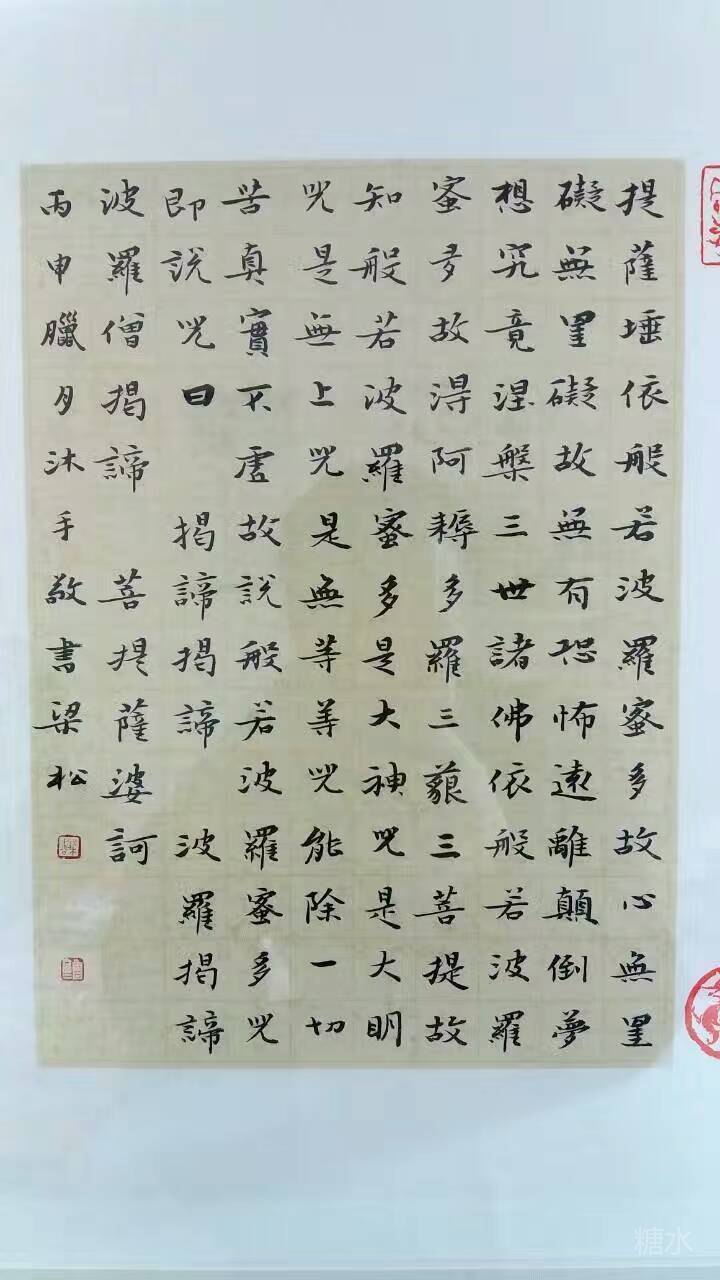 提薩埵依般若波羅蜜多故心無罣
礙無罣礙故無有恐怖遠離顛倒夢
想究竟涅槃三世諸佛依般若波羅
蜜多故淂阿耨多羅三藐三菩提故
知般若波羅蜜多是大神咒是大明
咒是無上咒是無等等咒能除一切
苦真實不虛故說般若波羅蜜多咒
即說咒曰 揭諦揭諦 波羅揭諦
波羅僧揭諦 菩提薩婆訶
丙申臘月沐手敬書梁松
糖水